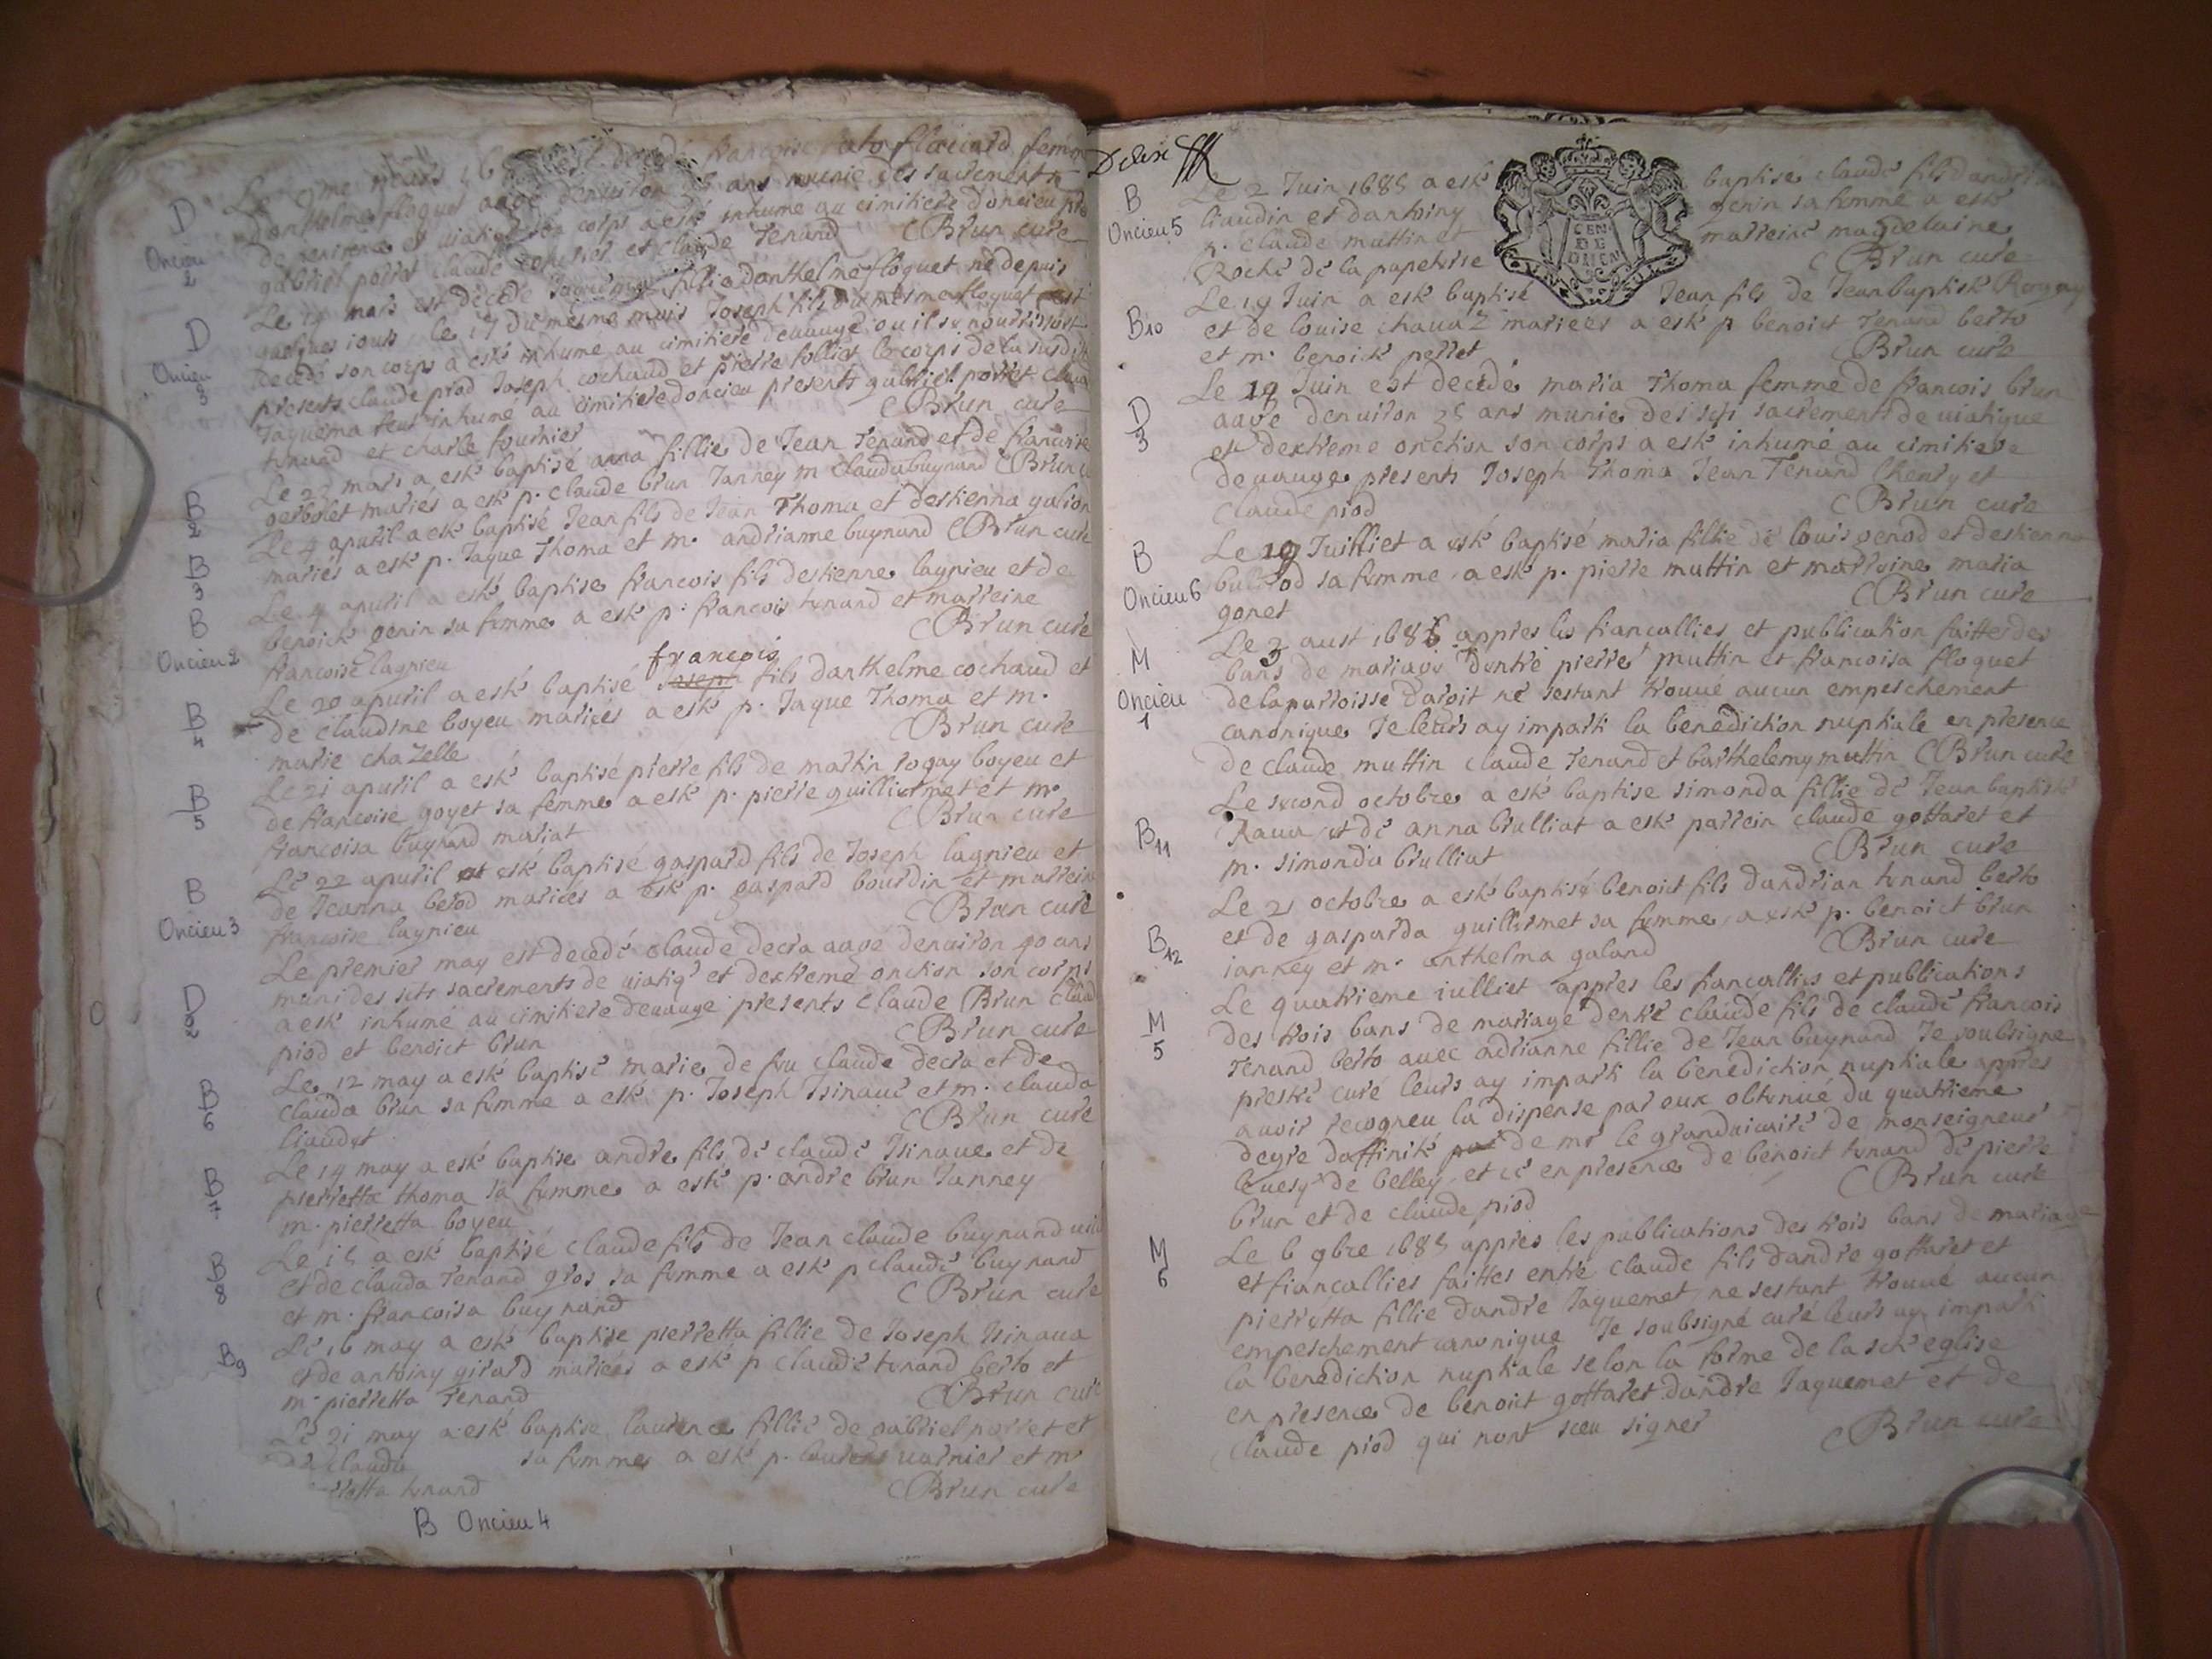 D
Oncieu
2
Le me mars 16 decedé francoise flaciard femme
danthelme floquet aagé denuiron ans munie des sacrements
de penitence et uiatique son corps a esté inhume au cimitiere doncieu
gabriel porret claude et claude Tenand Brun curé
D
Oncieu
3
Le 14 mars est decede Jaquema fillie danthelme floquet né depuis
quelques iours le 17 du mesme mois Joseph fils du mesme floquet est
decedé son corps a esté inhume au cimitiere deuauge ou il se nourrissoit
presents claude prod Joseph cochaud et pierre folliet le corps de la susdite
Jaquema feut inhumé au cimitiere doncieu presents gabriel porret
tenand et charle fournier Brun curé
B
2
Le 23 mars a esté baptisé anna fillie de Jean Tenand et de francoise
gerboret mariés a esté p. claude brun Janney m clauda buynand Brun
B
3
Le 4 apuril a esté baptisé Jean fils de Jean Thoma et destienna galion
mariés a esté p. Jaque Thoma et m. andrianne buynand Brun curé
B
Oncieu 2
Le 4 apuril a esté baptise francois fils destienne lagnieu et de
benoiste genin sa femme a esté p. francois tenand et marreine
francoise lagnieu Brun curé
B
4
francois
Le 20 apuril a esté baptisé Joseph fils danthelme cochaud et
de claudine boyeu mariés a esté p. Jaque Thoma et m.
marie chaZelle Brun curé
B
5
Le 21 apuril a esté baptisé pierre fils de martin rogay boyeu et
de francoise goyet sa femme a esté p. pierre guilliermet et m.
francoisa buynand mariat Brun curé
B
Oncieu 3
Le 22 apuril at esté baptisé gaspard fils de Joseph lagnieu et
de Jeanna berod mariées a esté p. gaspard bourdin et marreine
francoise lagnieu Brun curé
D
2
Le premier may est decedé claude decra aagé denuiron 40 ans
muni des sts sacrements de uiatiq et dextreme onction son corps
a esté inhumé au cimitiere deuauge presents claude Brun claude
piod et benoict brun Brun curé
B
6
Le 12 may a esté baptisé marie de feu claude decra et de
clauda brun sa femme a esté p. Joseph Isinaue et m. clauda
liaudet Brun curé
B
7
Le 14 may a esté baptise andre fils de claude Isinaue et de
pierretta thoma sa femme a esté p. andre brun Janney
m. pierretta boyeu
B
8
Le 15 a esté baptisé claude fils de Jean claude buynand
et de clauda Tenand gros sa femme a esté p claude buynand
et m. francoisa buynand Brun curé
B9
Le 16 may a esté baptise pierretta fillie de Joseph Isinaua
et de antoiny girard mariées a esté p claude tenand berto et
m. pierretta Tenand Brun curé
Le 31 may a esté baptise laurence fillie de gabriel porret et
de clauda sa femme a esté p. laurens uarnier et m.
tenand Brun curé
B Oncieu 4
B
Oncieu 5
Le 2 Juin 1685 a esté baptisé claude fils dandré
liaudin et dantoiny genin sa femme a esté
p. claude muttin et marreine magdelaine
Roche de la papeterie Brun curé
GEN
DE
B10
Le 19 Juin a esté baptisé Jean fils de Jean baptiste
et de louise chauaZ mariées a esté p benoict Tenand berto
et m. benoiste perret Brun curé
D
3
Le 19 Juin est decedé maria Thoma femme de francois brun
aage denuiron 35 ans munie des sts sacrements de uiatique
et dextreme onction son corps a esté inhumé au cimitiere
deuauge presents Joseph Thoma Jean Tenand Chenry et
claude piod Brun curé
B
Oncieu 6
Le 19 Juilliet a esté baptisé maria fillie de louis genod et destienna
sa femme a esté p. pierre muttin et marreine maria
gonet Brun curé
M
Oncieu
1
Le 3 aust 1685 appres les fiancallies et publication faittes des
bans de mariage dentre pierre muttin et francoisa floquet
de la parroisse daroit ne sestant trouué aucun empeschement
canonique Je leurs ay imparti la benediction nuptiale en presence
de claude muttin claude Tenand et barthelemy muttin Brun curé
B11
Le second octobre a esté baptise simonda fillie de Jean baptiste
Raua et de anna brulliat a esté parrein claude gottaret et
m. simonda brulliat Brun curé
B12
Le 21 octobre a esté baptisé benoict fils dandrian tenand berto
et de gasparda guillermet sa femme a esté p. benoict brun
ianney et m. anthelma galand Brun curé
M
5
Le quatrieme iulliet appres les fiancallies et publications
des trois bans de mariage dentre claude fils de claude francois
Tenand berto auec adrianne fillie de Jean buynand Je soubsigne
prestre curé leurs ay imparti la benediction nuptiale appres
auoir recogneu la dispense par eux obtenue du quatrieme
degre daffinité de mr le granduicaire de monseigneur
leuesq de belley et ce en presence de benoict tenand de pierre
brun et de claude piod Brun curé
M
6
Le 6 9bre 1685 appres les publications des trois bans de mariage
et fiancallies faittes entre claude fils dandre gottaret et
pierretta fillie dandre Jaquemet ne sestant trouué aucun
empeschement canonique Je soubsigné curé leurs ay imparti
la benediction nuptiale selon la forme de la ste eglise
en presence de benoict gottaret dandre Jaquemet et de
claude piod qui nont sceu signer Brun curé